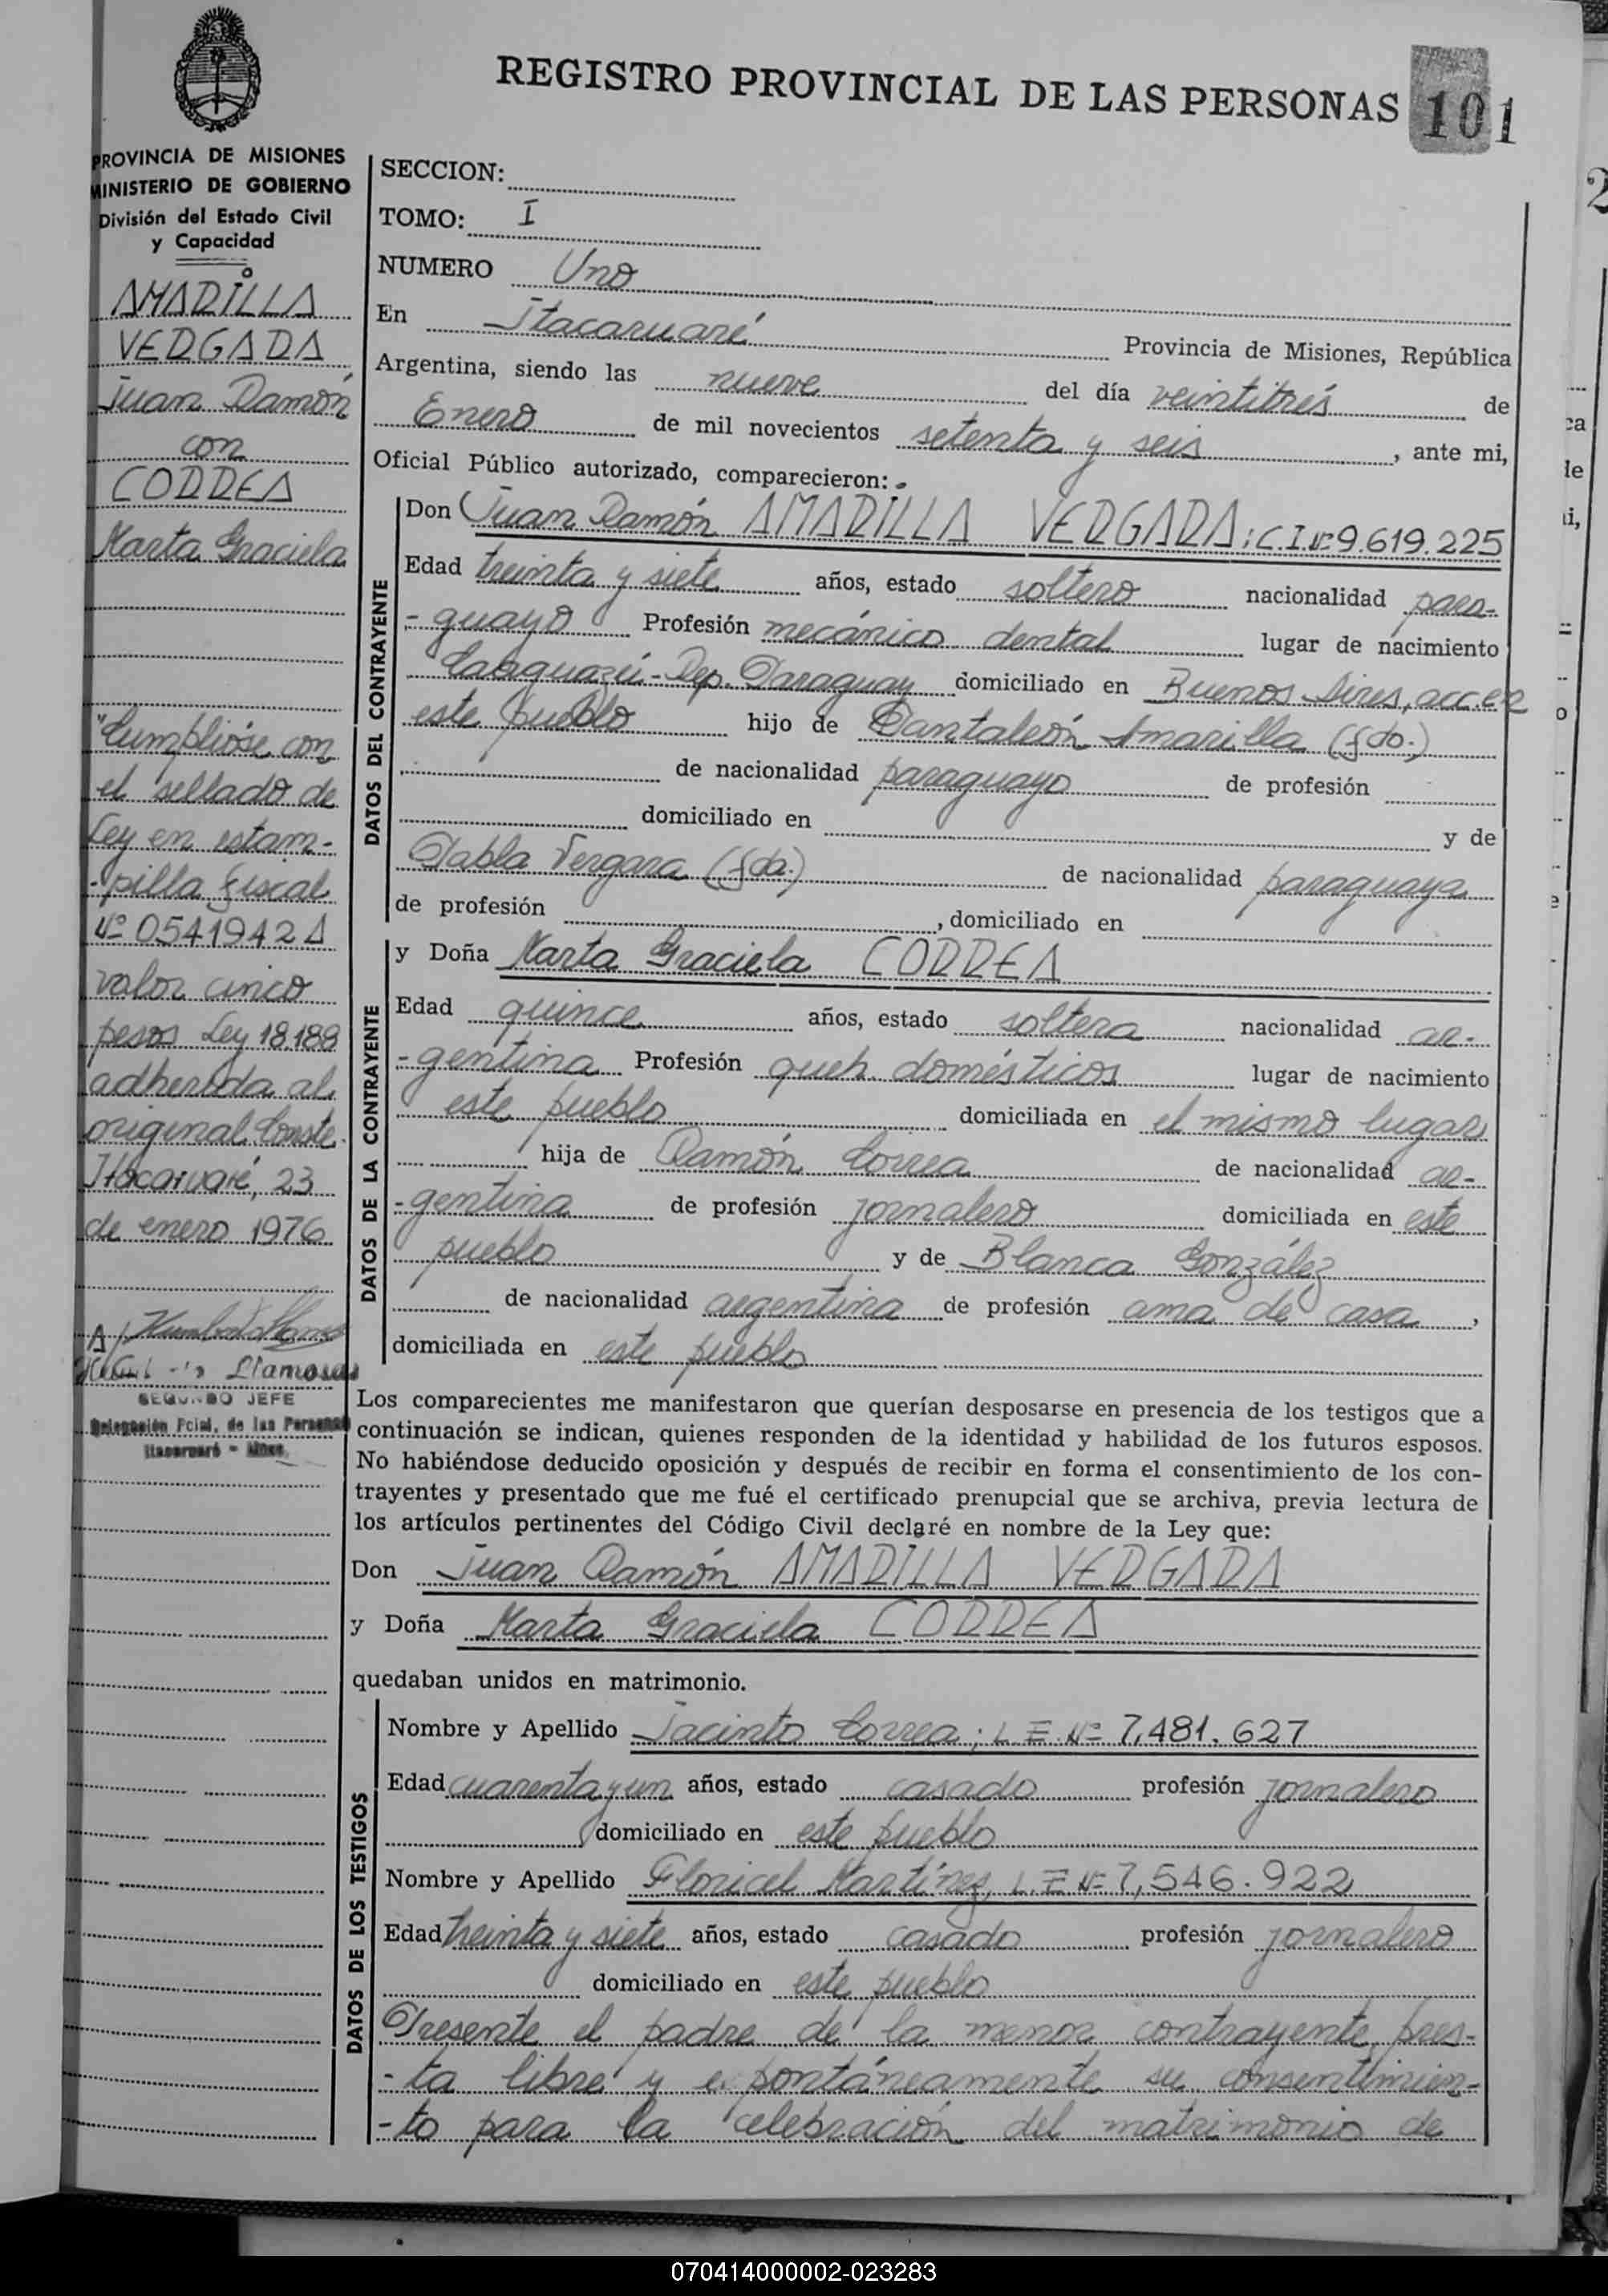 REGISTRO PROVINCIAL DE LAS PERSONAS 101
PROVINCIA DE MISIONES
MINISTERIO DE GOBIERNO
División del Estado Civil
y Capacidad
AMARILLA
VERGARA
Juan Ramón
con
CORREA
Marta Graciela
"Cumplióse con
el sellado de
Ley en estam-
-pilla fiscal
Nº 0541942 A
valor cinco
pesos Ley 18.188
adherida al
original. Conste.
Itacaruaré, 23
de enero 1976
Llamosas
SEGUNDO JEFE
Delegación Pcial. de las Personas
Itacaruaré - Mnes.
SECCION:
TOMO: I
NUMERO Uno
En Itacaruaré Provincia de Misiones, República
Argentina, siendo las nueve del día veintitrés de
Enero de mil novecientos setenta y seis, ante mi,
Oficial Público autorizado, comparecieron:
DATOS DEL CONTRAYENTE
Don Juan Ramón AMARILLA VERGARA; C.I.Nº 9.619.225
Edad treinta y siete años, estado soltero nacionalidad para-
-guayo Profesión mecánico dental lugar de nacimiento
Caaguazú-Rep. Paraguay domiciliado en Buenos Aires, acc. en
este pueblo hijo de Pantaleón Amarilla (fdo.)
de nacionalidad paraguayo de profesión
domiciliado en y de
Pabla Vergara (fda.) de nacionalidad paraguaya
de profesión , domiciliado en
DATOS DE LA CONTRAYENTE
y Doña Marta Graciela CORREA
Edad quince años, estado soltera nacionalidad ar-
-gentina Profesión queh. domésticos lugar de nacimiento
este pueblo domiciliada en el mismo lugar
hija de Ramón Correa de nacionalidad ar-
-gentina de profesión jornalero domiciliada en este
pueblo y de Blanca González
de nacionalidad argentina de profesión ama de casa,
domiciliada en este pueblo
Los comparecientes me manifestaron que querían desposarse en presencia de los testigos que a
continuación se indican, quienes responden de la identidad y habilidad de los futuros esposos.
No habiéndose deducido oposición y después de recibir en forma el consentimiento de los con-
trayentes y presentado que me fué el certificado prenupcial que se archiva, previa lectura de
los artículos pertinentes del Código Civil declaré en nombre de la Ley que:
Don Juan Ramón AMARILLA VERGARA
y Doña Marta Graciela CORREA
quedaban unidos en matrimonio.
DATOS DE LOS TESTIGOS
Nombre y Apellido Jacinto Correa; L.E.Nº 7,481.627
Edad cuarenta y un años, estado casado profesión jornalero
domiciliado en este pueblo
Nombre y Apellido Floricel Martínez, L.E Nº 7,546.922
Edad treinta y siete años, estado casado profesión jornalero
domiciliado en este pueblo
Presente el padre de la menor contrayente, pres-
-ta libre y espontáneamente su consentimien-
-to para la celebración del matrimonio de
070414000002-023283